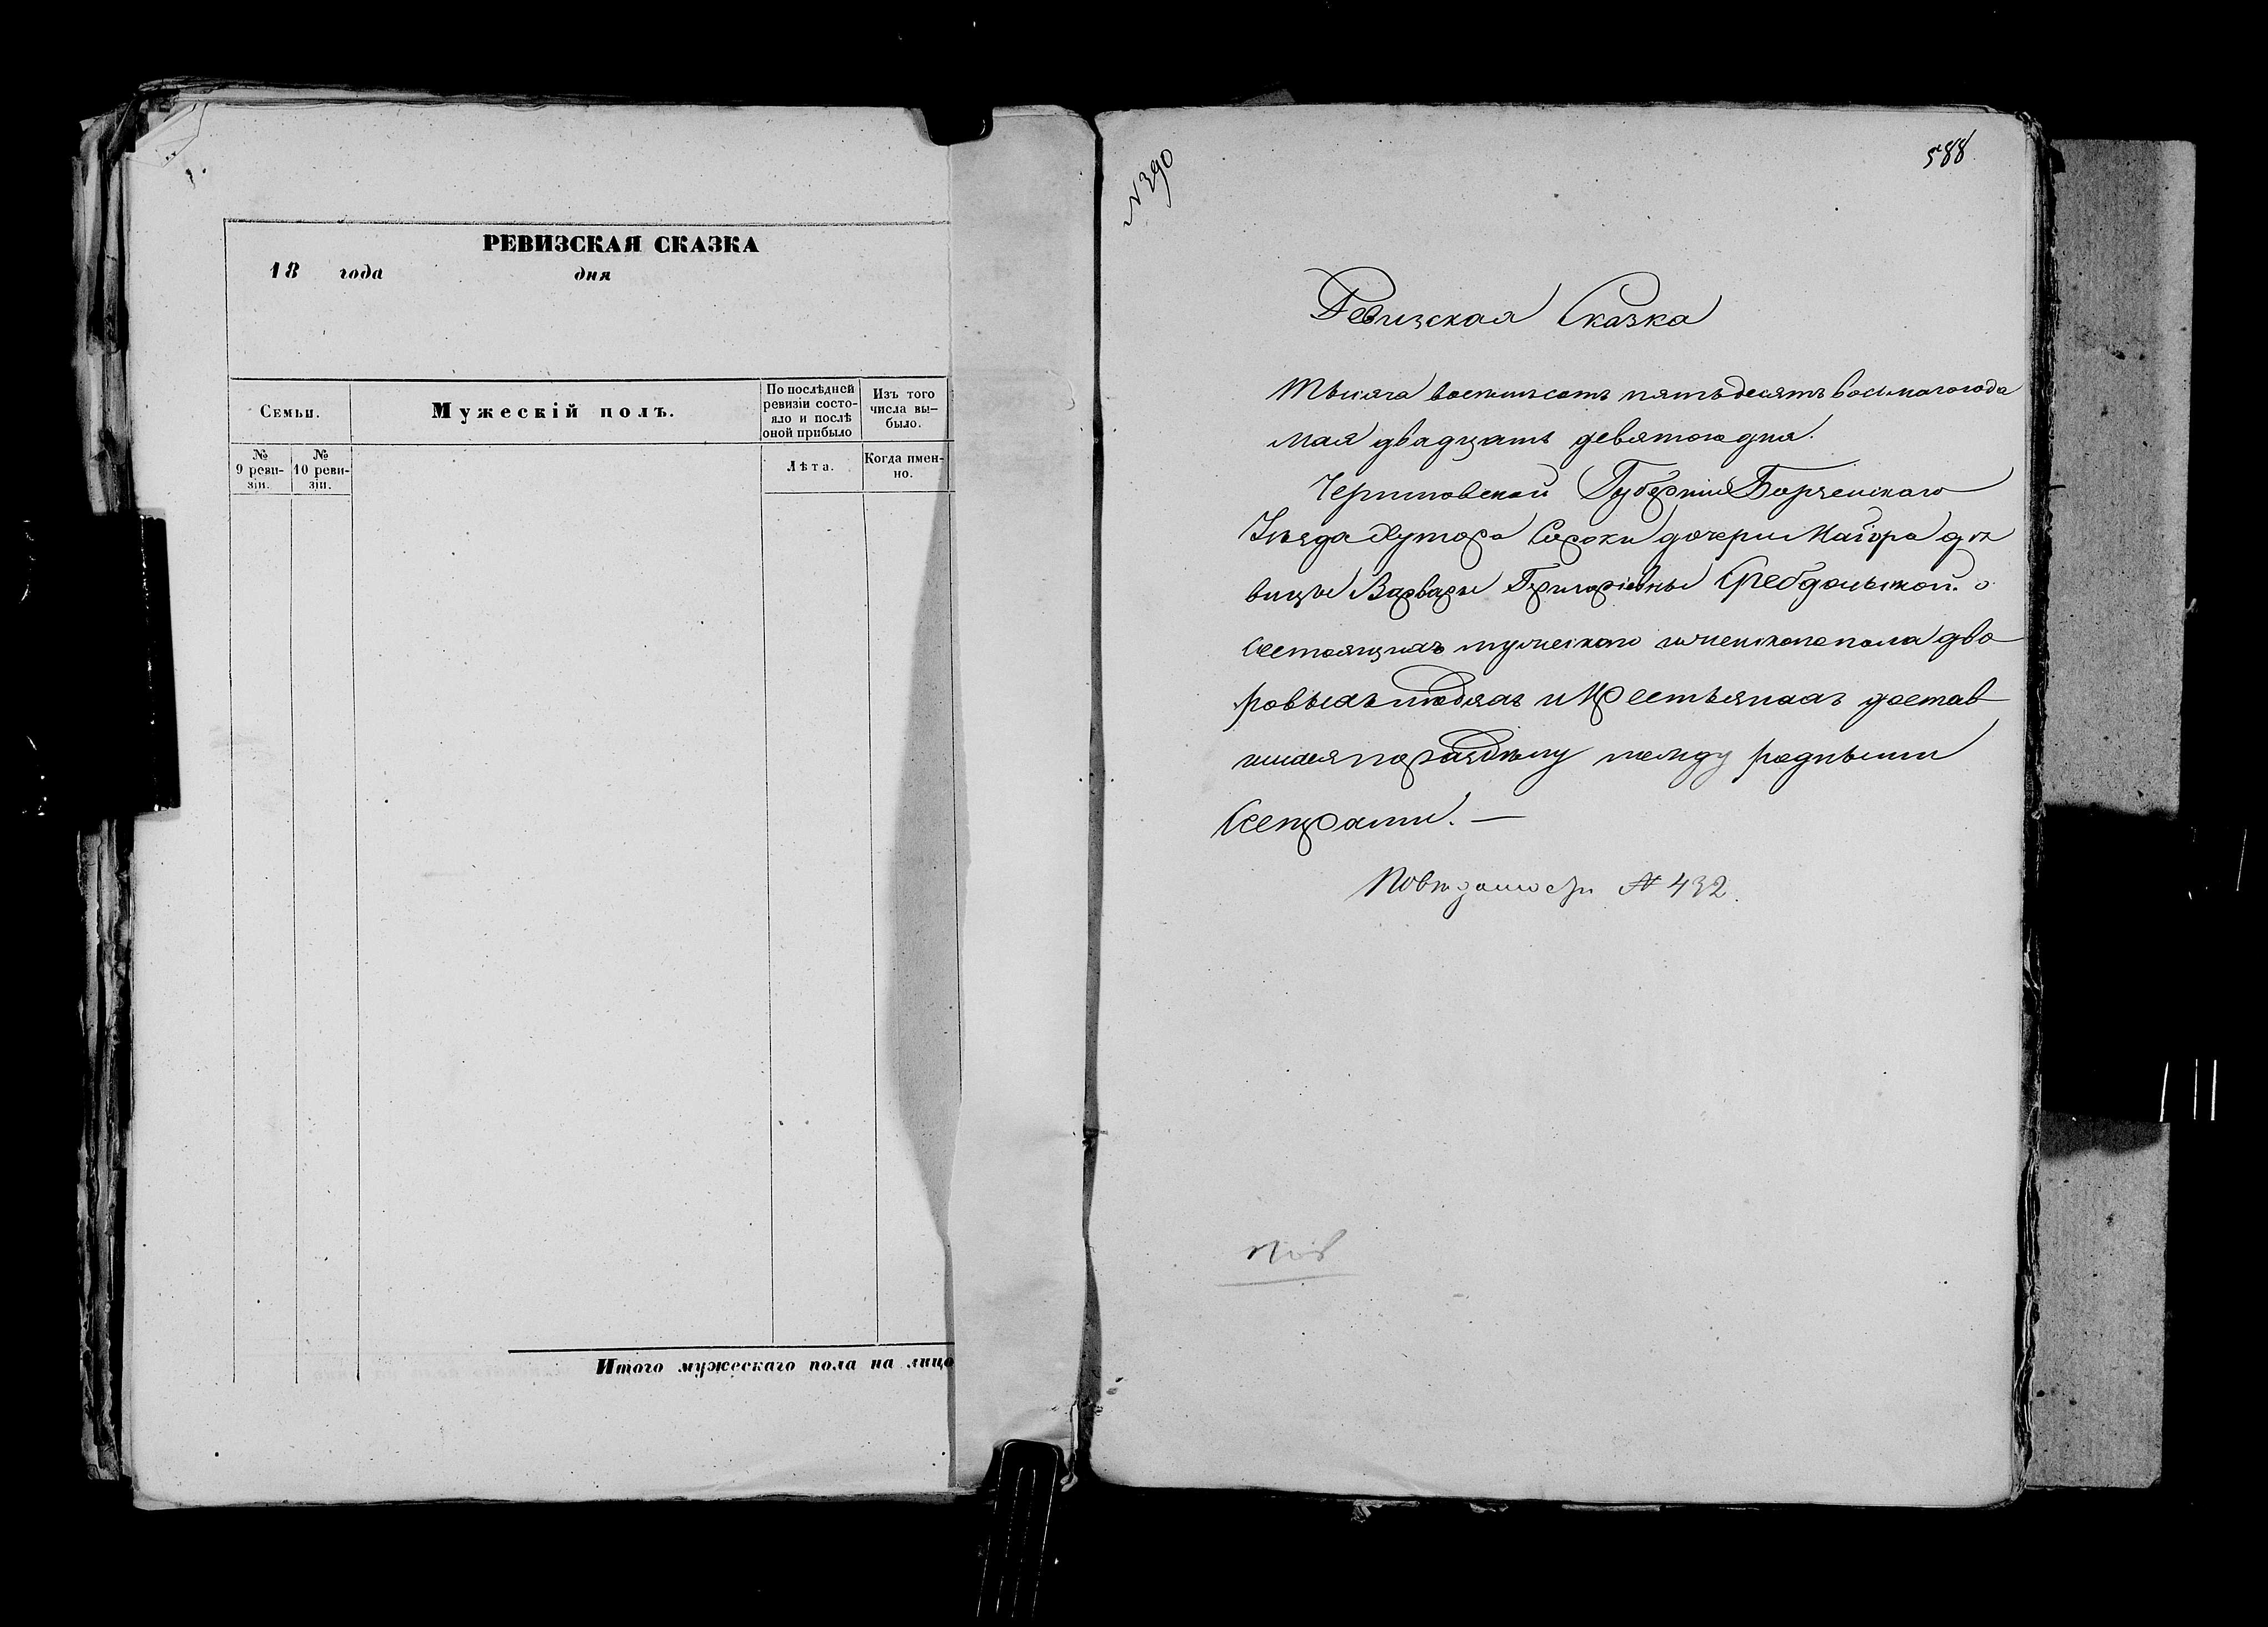 РЕВИЗСКАЯ СКАЗКА
18 года дня
Семьи.
Мужескій полъ.
По послѣдней ревизіи состо-
яло и послѣ
оной прибыло
Изъ того
числа вы-
было.
№
9 реви-
зіи.
№
10 реви-
зіи.
Лѣта.
Когда имен-
но.
Итого мужескаго пола на лицо
№ 390
588
Ревизская Сказка
Тысяча восемьсотъ пятьдесятъ восьмаго года
мая двадцать девятого дня.
Черниговской Губерніи Борзенскаго
Уѣзда Хутора Сороки дочери Маіора дѣ
вицы Варвары Григоріевны Сребдольской. о
состоящихъ мужескаго и женского пола дво
ровыхъ людяхъ и Крестьянахъ достав
шихся по раздѣлу между родными
Сестрами. —
По вѣдомости № 432.